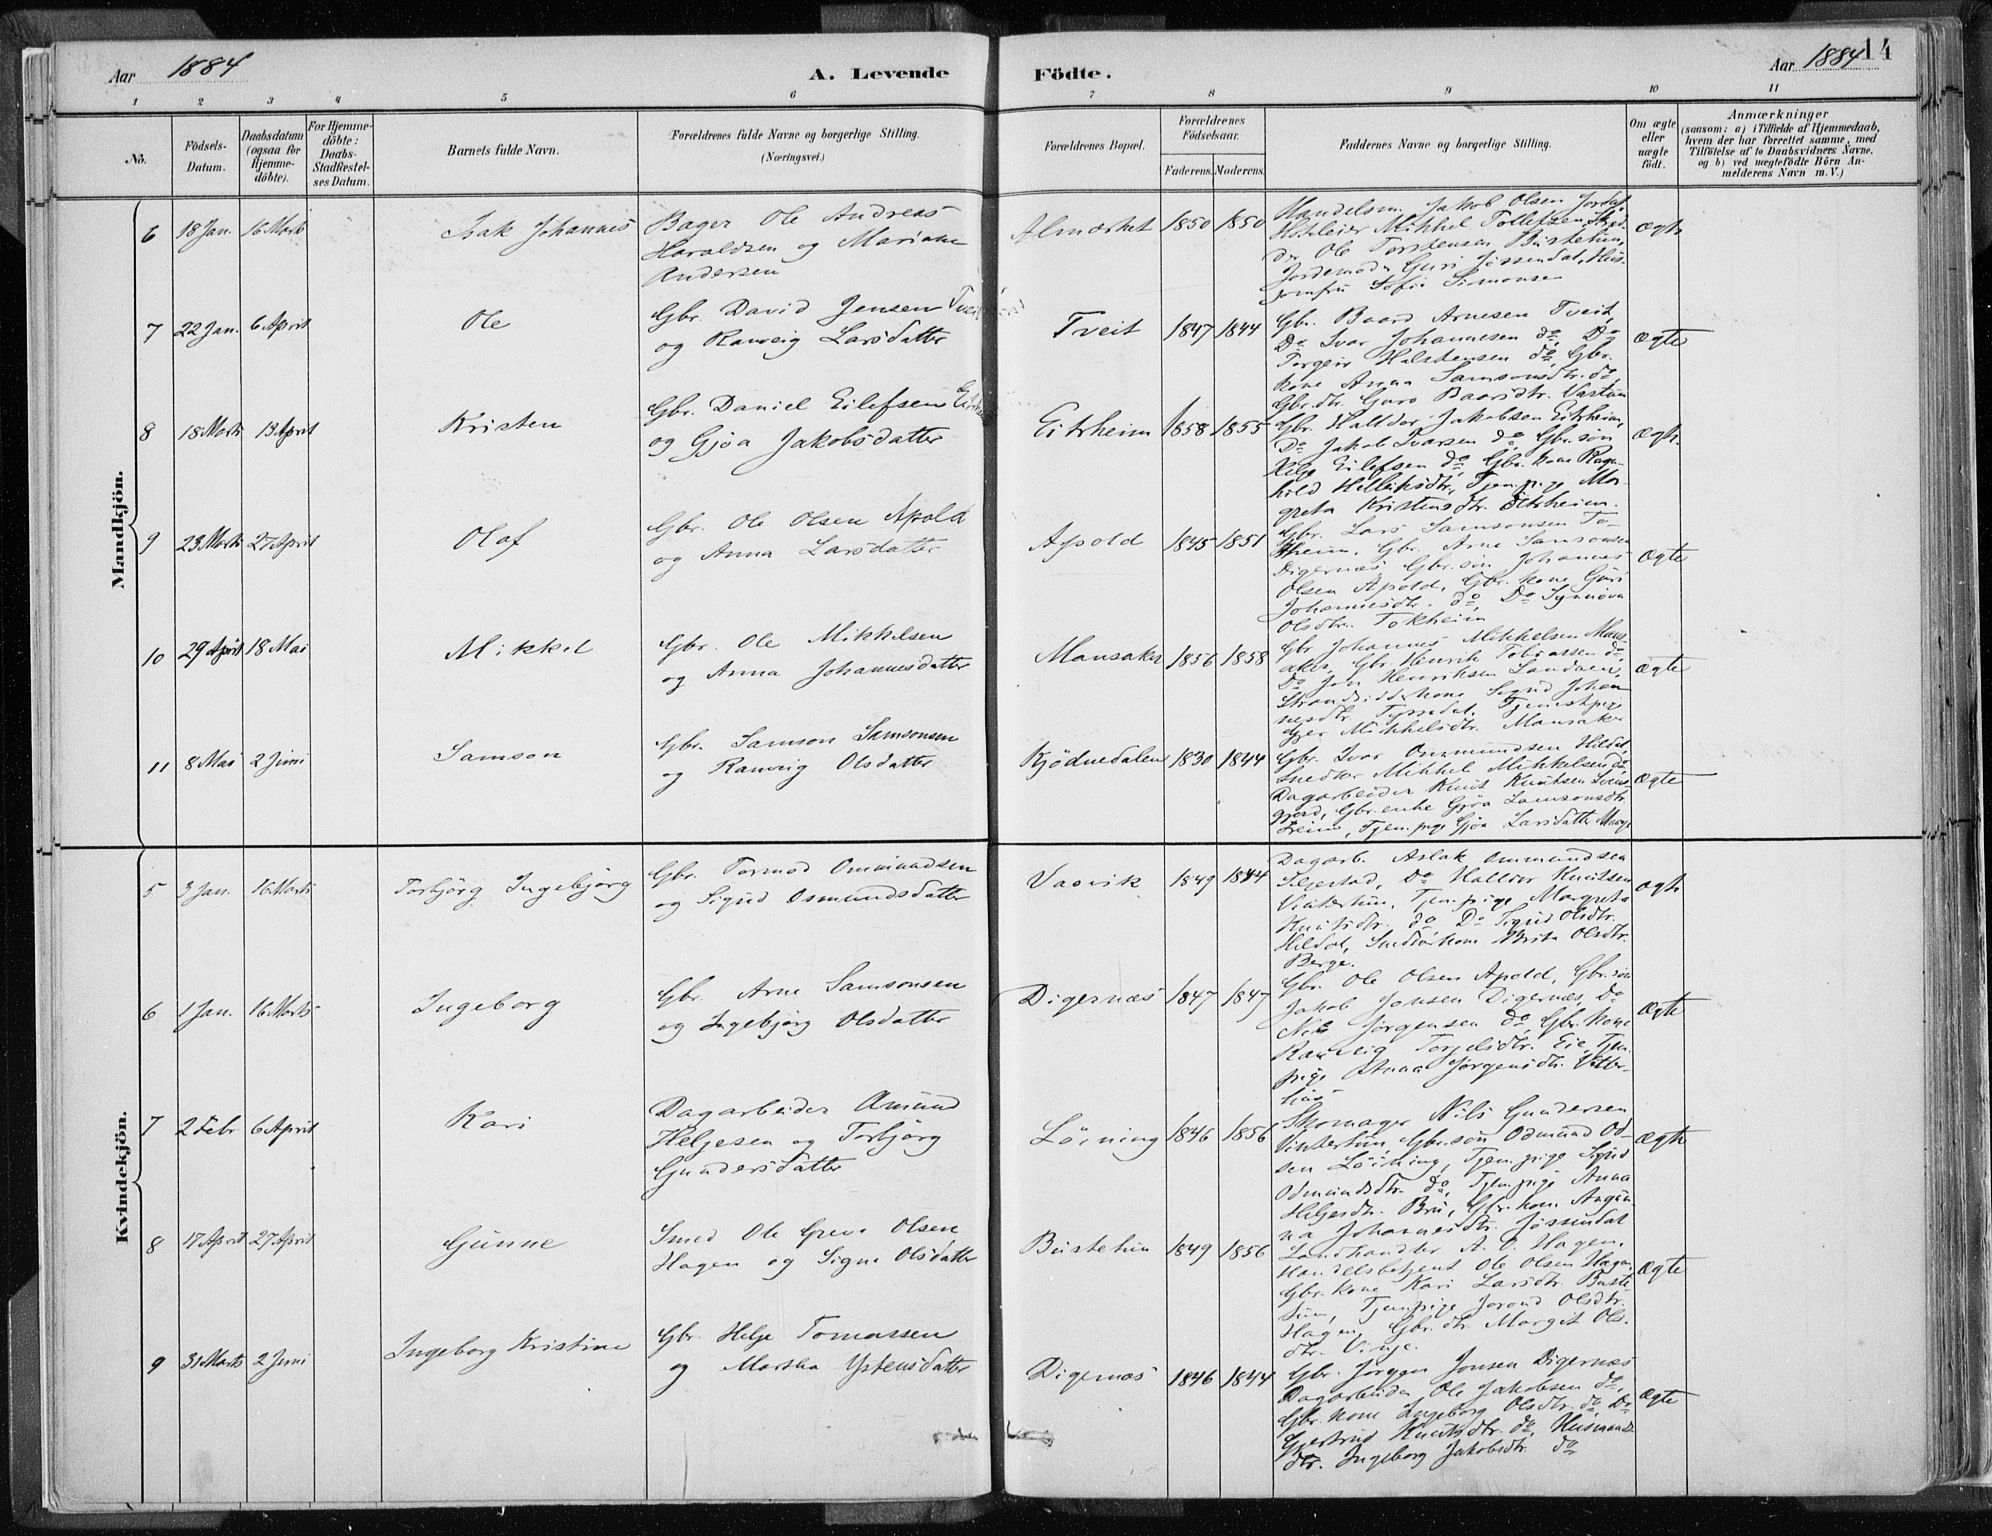 Aar 1884
A. Levende Födte.
Aar 1884
14
1 2 3 4 5 6 7 8 9 10 11
No.
Födsels-Datum.
Daabsdatum (ogsaa for Hjemme-döbte).
For Hjemme-döbte: Daabs-Stadfæstel-ses Datum.
Barnets fulde Navn.
Forældrenes fulde Navne og borgerlige Stilling.
(Næringsvei.)
Forældrenes Bopæl.
Forældrenes Födselsaar.
Faderens. Moderens.
Faddernes Navne og borgerlige Stilling.
Om ægte eller uægte födt.
Anmærkninger
(saasom: a) i Tilfælde af Hjemmedaab,
hvem der har forrettet samme, med
Tilföielse af to Daabsvidners Navne,
og b) ved uægtefödte Börn An-
melderens Navn m. V.)
Mandkjön.
6 18 Jan. 16 Marts Isak Johannes
Bager Ole Andreas
Haraldsen og Mariane
Andersen
Almerket 1850 1850
Handelsm. Jakob Olsen Jordal
Hoteleier Mikkel Tollefsen
Ole Torstensen Bustetun,
Jordemoder Guri Jössendal, Hus-
jomfru Sofie Simonsen
ægte
7 22 Jan. 6 April Ole
Gbr. David Jensen Tveit
og Ranveig Larsdatter
Tveit 1847 1844
Gbr. Baard Arnesen Tveit,
Do Ivar Johannesen do, Do
Torgeir Halstensen do, Gbr.
kone Anna Samsonsdtr. do,
Gbr. dtr. Guro Baardsdtr. Vastun
ægte
8 18 Marts 13 April Kristen
Gbr. Daniel Eilefsen
og Gjøa Jakobsdatter
Eitrheim 1858 1855
Gbr. Halldor Jakobsen Eitrheim,
Do Jakob Ivarsen do Gbr. søn
Helge Eilefsen do, Gbr. kone Ragn-
hild Helleiksdtr., Tjen.pige Mar-
greta Kristensdtr. Eitrheim.
ægte
9 23 Marts 27 April Olaf
Gbr. Ole Olsen Apold
og Anna Larsdatter
Apold 1845 1851
Gbr. Lars Samsonsen To-
kheim, Gbr. Arne Samsonsen
Digernæs, Gbr. søn Johannes
Olsen Apold, Gbr. kone Guri
Johannesdtr. do, Do Synnöva
Olsdtr. Tokheim
ægte
10 29 April 18 Mai Mikkel
Gbr. Ole Mikkelsen
og Anna Johannesdatter
Mansaker 1856 1858
Gbr. Johannes Mikkelsen Mans-
aker, Gbr. Henrik Tobiassen do,
Do Jon Henriksen Sandven,
Strandsidderkone Sigrid Johan-
nesdtr. Tyssedal, Tjenestpige
Mikkelsdtr. Mansaker
ægte
11 8 Mai 2 Juni Samson
Gbr. Samson Samsonsen
og Ranveig Olsdatter
Kjödnedalen 1830 1844
Gbr. Ivar Ommundsen Hildal,
Snedker Mikkel Mikkelsen do,
Dagarbeider Knut Knutsen
Gbr. enke Gjøa Samsonsdtr.
Freim, Tjen.pige Gjøa Larsdatter Mauge
ægte
Kvindekjön.
5 3 Jan. 16 Marts Torbjörg Ingebjörg
Gbr. Tormod Ommundsen
og Sigrid Osmundsdatter
Vasvik 1849 1844
Dagarb. Aslak Ommundsen
Seljestad, Do Halldor Knutsen
Vintertun, Tjen.pige Margreta
Knutsdtr. do Do Sigrid Olsdtr.
Hildal, Snedkerkone Brita Olsdtr.
Berge.
ægte
6 1 Jan. 16 Marts Ingeborg
Gbr. Arne Samsonsen
og Ingebjörg Olsdatter
Digernæs 1847 1847
Gbr. Ole Olsen Apold, Gbr. søn
Jakob Jonsen Digernæs, Do
Nils Jörgensen do, Gbr. kone
Ranveig Torgelsdtr. Eie, Tjen.
pige Anna Jörgensdtr.
ægte
7 2 Febr 6 April Kari
Dagarbeider Amund
Helgesen og Torbjörg
Gundersdatter
Löining 1846 1856
Skomager Nils Gundersen
Vintertun, Gbr. søn Odmund Od-
sen Löining, Tjen.pige Sigrid
Odmundsdtr. do, Tjen.pige Anna
Helgesdtr. Bru, Gbr. kone
Johannesdtr. Jössendal
ægte
8 17 April 27 April Gunne
Smed Ole Greve Olsen
Hagen og Signe Olsdatter
Bustetun 1849 1856
Landhandler A. O. Hagen,
Handelsbetjent Ole Olsen Hagen,
Gbr. kone Kari Larsdtr. Buste-
tun, Tjen.pige Jorond Olsdtr.
Hagen, Gbr. dtr. Margit Ols-
dtr. Vinje.
ægte
9 31 Marts 2 Juni Ingeborg Kristine
Gbr. Helje Tomassen
og Martha Ystensdatter
Digernæs 1846 1844
Gbr. Jörgen Jonsen Digernæs
Dagarbeider Ole Jakobsen do,
Gbr. kone Ingeborg Olsdtr. do, Do
Gjertrud Knutsdtr. do, Husmands
dtr. Ingeborg Jakobsdtr. do
ægte